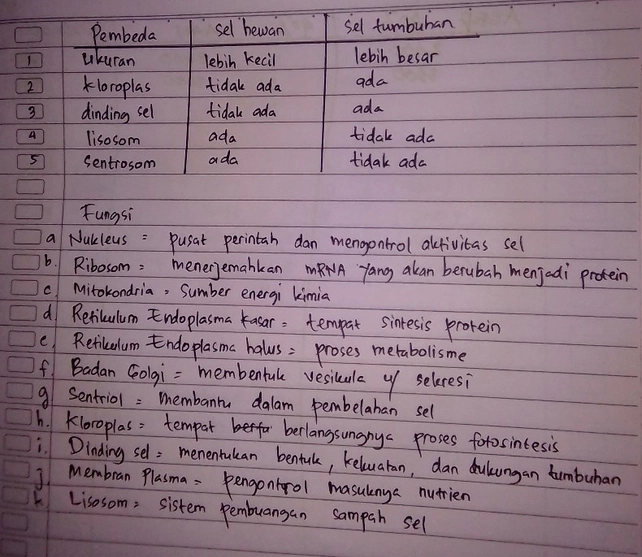 Pembeda sel hewan sel tumbuhan
1 ukuran lebih kecil lebih besar
2 kloroplas tidak ada ada
3 dinding sel tidak ada ada
4 lisosom ada tidak ada
5 sentrosom ada tidak ada
Fungsi
a Nukleus = pusat perintah dan mengontrol aktivitas sel
b. Ribosom = menerjemahkan mRNA yang akan berubah menjadi protein
c. Mitokondria = sumber energi kimia
d Retikulum Endoplasma kasar = tempat sintesis protein
e. Retikulum Endoplasma halus = proses metabolisme
f. Badan Golgi = membentuk vesikula u/ sekresi
g Sentriol = membantu dalam pembelahan sel
h. Kloroplas = tempat berlangsungnya proses fotosintesis
i. Dinding sel = menentukan bentuk, kekuatan, dan dukungan tumbuhan
j. Membran Plasma = pengontrol masuknya nutrien
k Lisosom = sistem pembuangan sampah sel